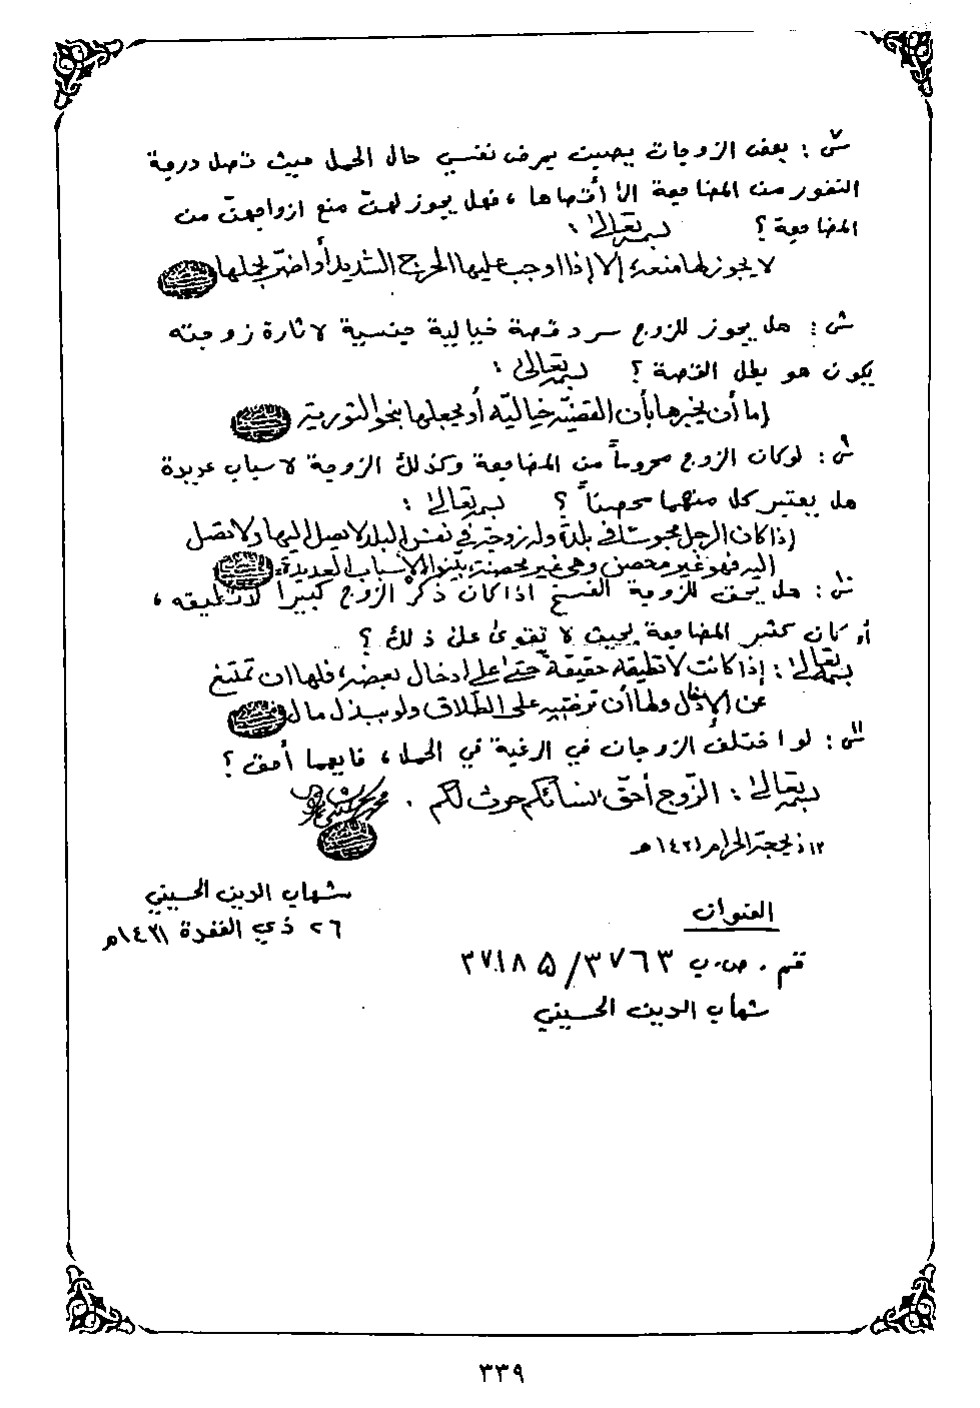 س٧ : بعض الزوجات يصبن بمرض نفسي حال الحمل بحيث تصل درجة
النفور من المضاجعة الى أقصاها ، فهل يجوز لهن منع ازواجهن من
المضاجعة ؟ بسمه تعالى :
لا يجوز لها منعه إلا إذا اوجب عليها الحرج الشديد أو اضرّ بحملها
س٨ : هل يجوز للزوج سرد قصة خيالية جنسية لاثارة زوجته
يكون هو بطل القصة ؟ بسمه تعالى :
إما أن يخبرها بأن القضيّة خياليّة أو يجعلها بنحو التورية
س٩ : لو كان الزوج محروماً من المضاجعة وكذلك الزوجة لاسباب عديدة
هل يعتبر كل منهما محصناً ؟ بسمه تعالى :
إذا كان الرجل محبوساً في بلدة وله زوجة في نفس البلد لا يصل إليها ولا تصل
اليه فهو غير محصن وهي غير محصنة، بيّنوا الأسباب العديدة.
س١٠ : هل يحق للزوجة الفسخ اذا كان ذكر الزوج كبيراً لا تطيقه ،
أو كان كثير المضاجعة بحيث لا تقوى على ذلك ؟
بسمه تعالى : إذا كانت لا تطيقه حقيقة حتى على إدخال بعضه، فلها ان تمتنع
عن الإدخال ولها أن ترضيه على الطلاق ولو ببذل مال
س١١ : لو اختلف الزوجان في الرغبة في الحمل ، فايهما أحق ؟
بسمه تعالى : الزّوج أحقّ نسائكم حرث لكم .
١٢ ذيحجة الحرام ١٤٢١هـ
شهاب الدين الحسيني
٢٦ ذي القعدة ١٤٢١هـ
العنوان
قم . ص.ب ٣٧٦٣/٣٧١٨٥
شهاب الدين الحسيني
٣٣٩